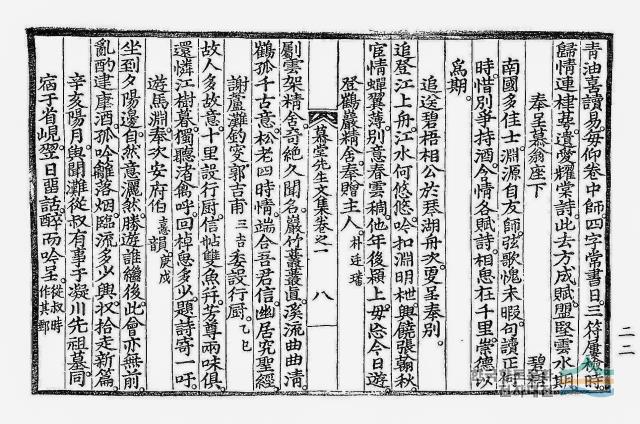 青油喜讀易毋仰卷中師四字常書日三符屢檄時
歸情連棣蕚遺愛耀棠詩此去方成賦盟堅雲水期
奉呈慕翁座下 碧
南國多佳士淵源自友師弦歌愧未暇句讀正
時惜別爭持酒含情各賦詩相思在千里崇德以
爲期
追送碧梧相公於琴湖舟次更呈奉別
追登江上舟江水何悠悠吟扣淵明枻興饒張翰秋
宦情蟬翼薄別意春雲稠他年後穎上毋忘今日遊
登鶴巖精舍奉贈主人 朴廷璠
慕堂先生文集卷之一 八
劚雲架精舍奇絶久聞名巖竹叢叢直溪流曲曲清
鶴孤千古意松老四時情端合吾君信幽居究聖經
謝蘆灘釣叟郭吉甫 三吉 委設行厨 乙巳
故人多故意十里設行厨信帖雙魚幷芳尊兩味俱
還憐江樹暮獨聽渚禽呼回棹思多少題詩寄一吁
遊馬淵奉次安府伯 憙 韻 庚戌
坐到夕陽邊自然意灑然勝遊誰繼後此會亦無前
亂酌建康酒孤吟離落烟臨流多少興收拾走新篇
辛亥陽月與關灘從叔有事于凝川先祖墓同
宿于省峴翌日留話醉而吟呈 從叔時作其郵
二二